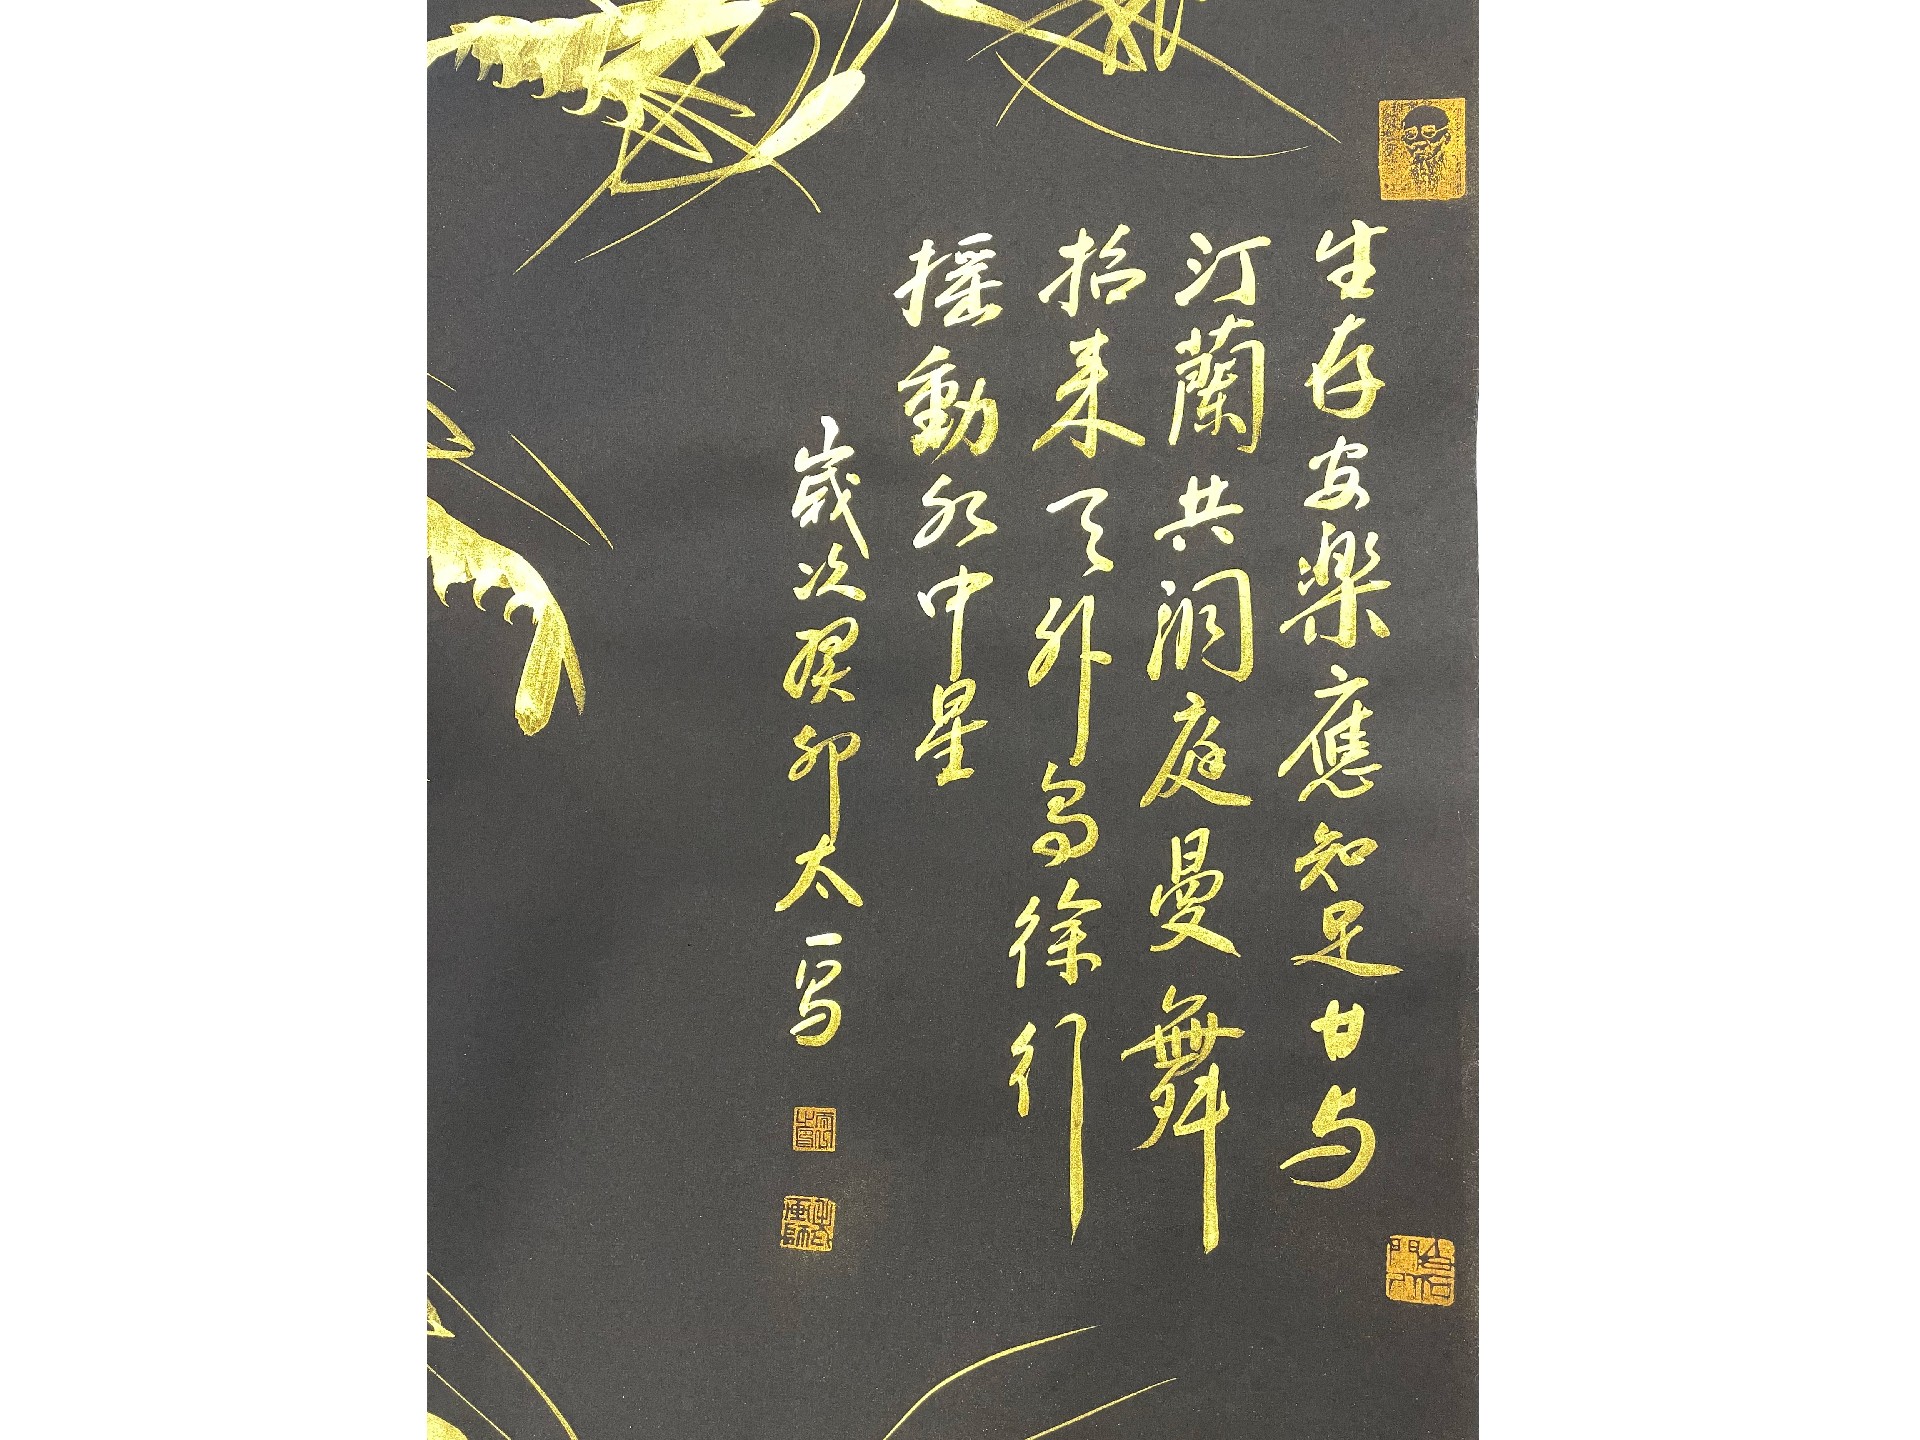 生存安樂應知足甘与
汀蘭共洞庭曼舞
招来天外鳥徐行
摇動水中星
歲次癸卯太一写